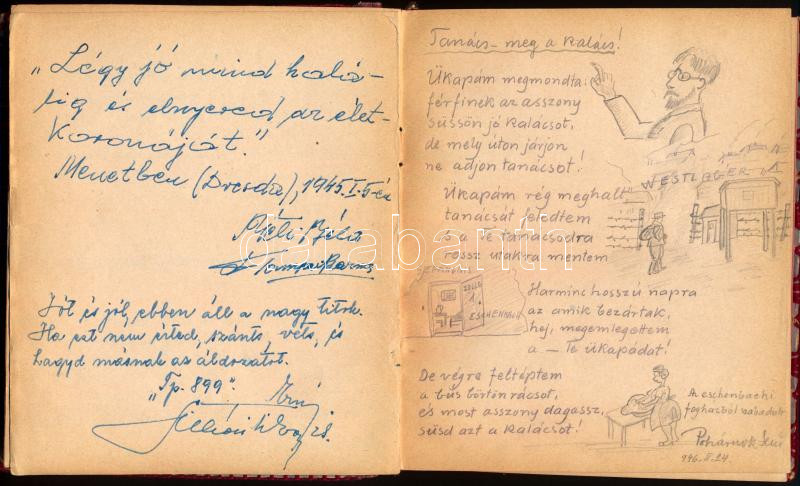 "Légy jó mind halá-
lig és elnyered az élet-
koronáját."
Menetben (Drezda), 1945. I. 5-én
Béla
Jót és jól, ebben áll a nagy titok.
Ha ezt nem érted, szánts, vets, és
hagyd másnak az áldozatot.
"Tp. 899."
Tanács- meg a kalács!
Ükapám megmondta:
férfinek az asszony
süssön jó kalácsot,
de mely úton járjon
ne adjon tanácsot!
WESTLAGER
Ükapám rég meghalt
tanácsát feledtem
és a Te tanácsodra
rossz utakra mentem
ZELLE
1.
ESCHENBACH
Harminc hosszú napra
az amik bezártak,
hej, megemlegettem
a – Te ükapádat!
De végre feltéptem
a bús börtönrácsot,
és most asszony dagassz,
süsd azt a kalácsot!
Az eschenbachi
fogházból szabadult
Pohárnok Jenő
946. II. 24.
darabanth